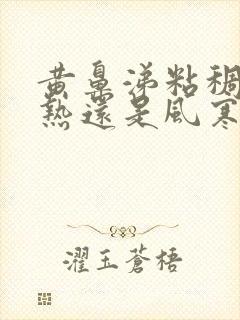 黄鼻涕粘稠
熱還是風寒
濯玉蒼梧